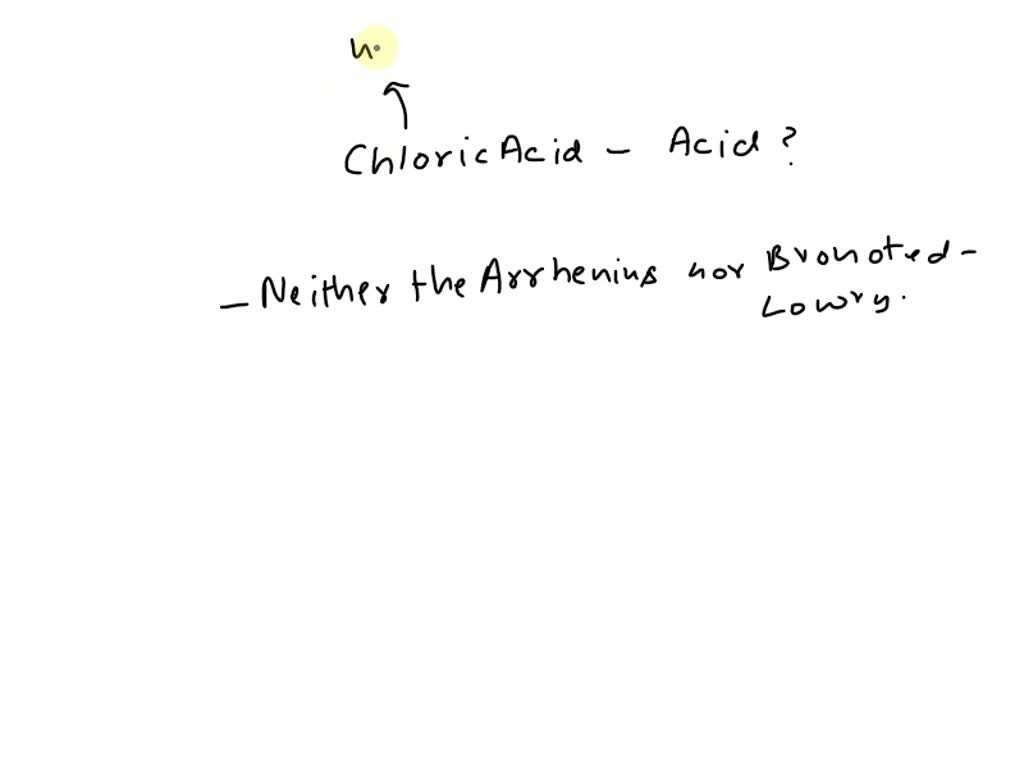 Chloric Acid - Acid ?
- Neither the Arrhenius nor Bronoted -
Lowry.